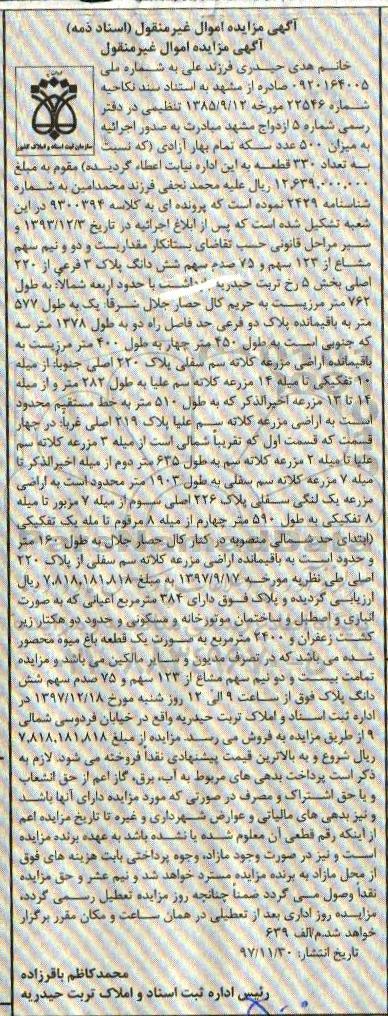 آگهی مزایده اموال غیرمنقول (اسناد ذمه)
آگهی مزایده اموال غیرمنقول
خانم هدی حیدری فرزند علی به شماره ملی
۰۹۲۰۱۶۴۰۰۵ صادره از مشهد به استناد سند نکاحیه
شماره ۲۲۵۴۶ مورخه ۱۳۸۵/۹/۱۲ تنظیمی در دفتر
رسمی شماره ۵ ازدواج مشهد مبادرت به صدور اجرائیه
به میزان ۵۰۰ عدد سکه تمام بهار آزادی (که نسبت
به تعداد ۳۳۰ قطعه به این اداره نیابت اعطاء گردیده) مقوم به مبلغ
۱۲,۶۳۹,۰۰۰,۰۰۰ ریال علیه محمد نجفی فرزند محمدامین به شماره
شناسنامه ۲۴۲۹ نموده است که پرونده ای به کلاسه ۹۳۰۰۳۹۴ در این
شعبه تشکیل شده است که پس از ابلاغ اجرائیه در تاریخ ۱۳۹۳/۱۲/۳ و
سیر مراحل قانونی حسب تقاضای بستانکار مقدار بیست و دو و نیم سهم
مشاع از ۱۲۳ سهم و ۷۵ صدم سهم شش دانگ پلاک ۳ فرعی از ۲۲۰
اصلی بخش ۵ رخ تربت حیدریه با حدود اربعه شمالا: به طول
۷۶۲ متر مرزیست به حریم کال حصار جلال شرقاً یک به طول ۵۷۷
متر به باقیمانده پلاک دو فرعی حد فاصل راه دو به طول ۱۳۷۸ متر سه
که جنوبی است به طول ۴۵۰ متر چهار به طول ۴۰۰ متر مرزیست به
باقیمانده اراضی مزرعه کلاته سم سفلی پلاک ۲۲۰ اصلی جنوبا: از میله
۱۰ تفکیکی تا میله ۱۴ مزرعه کلاته سم علیا به طول ۲۸۲ متر و از میله
۱۴ تا ۱۳ مزرعه اخیرالذکر که به طول ۵۱۰ متر به خط مستقیم محدود
است به اراضی مزرعه کلاته سم علیا پلاک ۲۱۹ اصلی غربا: در چهار
قسمت که قسمت اول که تقریباً شمالی است از میله ۳ مزرعه کلاته سم
علیا تا میله ۲ مزرعه کلاته سم به طول ۶۲۵ متر دوم از میله اخیرالذکر تا
میله ۷ مزرعه کلاته سم سفلی به طول ۱۹۰۳ متر محدود است به اراضی
مزرعه یک لنگی سفلی پلاک ۲۲۶ اصلی سوم از میله ۷ مزبور تا میله
۸ تفکیکی به طول ۵۹۰ متر چهارم از میله ۸ مرقوم تا مله یک تفکیکی
(ابتدای حد شمالی منصوبه در کنار کال حصار جلال به طول ۱۶۰ متر
و حدود است به باقیمانده اراضی مزرعه کلاته سم سفلی از پلاک ۲۲۰
اصلی طی نظریه مورخه ۱۳۹۷/۹/۱۷ به مبلغ ۷,۸۱۸,۱۸۱,۸۱۸ ریال
ارزیابی گردیده و پلاک فوق دارای ۳۸۴ مترمربع اعیانی که به صورت
انباری و اصطبل و ساختمان موتورخانه و مسکونی و حدود دو هکتار زیر
کشت زعفران و ۲۴۰۰ مترمربع به صورت یک قطعه باغ میوه محصور
شده می باشد که در تصرف مدیون و سایر مالکین می باشد و مزایده
تمامت بیست و دو نیم سهم مشاع از ۱۲۳ سهم و ۷۵ صدم سهم شش
دانگ پلاک فوق از ساعت ۹ الی ۱۲ روز شنبه مورخ ۱۳۹۷/۱۲/۱۸ در
اداره ثبت اسناد و املاک تربت حیدریه واقع در خیابان فردوسی شمالی
۹ از طریق مزایده به فروش می رسد. مزایده از مبلغ ۷,۸۱۸,۱۸۱,۸۱۸
ریال شروع و به بالاترین قیمت پیشنهادی نقداً فروخته می شود. لازم به
ذکر است پرداخت بدهی های مربوط به آب، برق، گاز اعم از حق انشعاب
و یا حق اشتراک و مصرف در صورتی که مورد مزایده دارای آنها باشد
و نیز بدهی های مالیاتی و عوارض شهرداری و غیره تا تاریخ مزایده اعم
از اینکه رقم قطعی آن معلوم شده یا نشده باشد به عهده برنده مزایده
است و نیز در صورت وجود مازاد، وجوه پرداختی بابت هزینه های فوق
از محل مازاد به برنده مزایده مسترد خواهد شد و نیم عشر و حق مزایده
نقداً وصول می گردد ضمناً چنانچه روز مزایده تعطیل رسمی گردد،
مزایده روز اداری بعد از تعطیلی در همان ساعت و مکان مقرر برگزار
خواهد شد.م/الف ۶۳۹
تاریخ انتشار: ۹۷/۱۱/۳۰
محمدکاظم باقرزاده
رئیس اداره ثبت اسناد و املاک تربت حیدریه
سازمان ثبت اسناد و املاک کشور